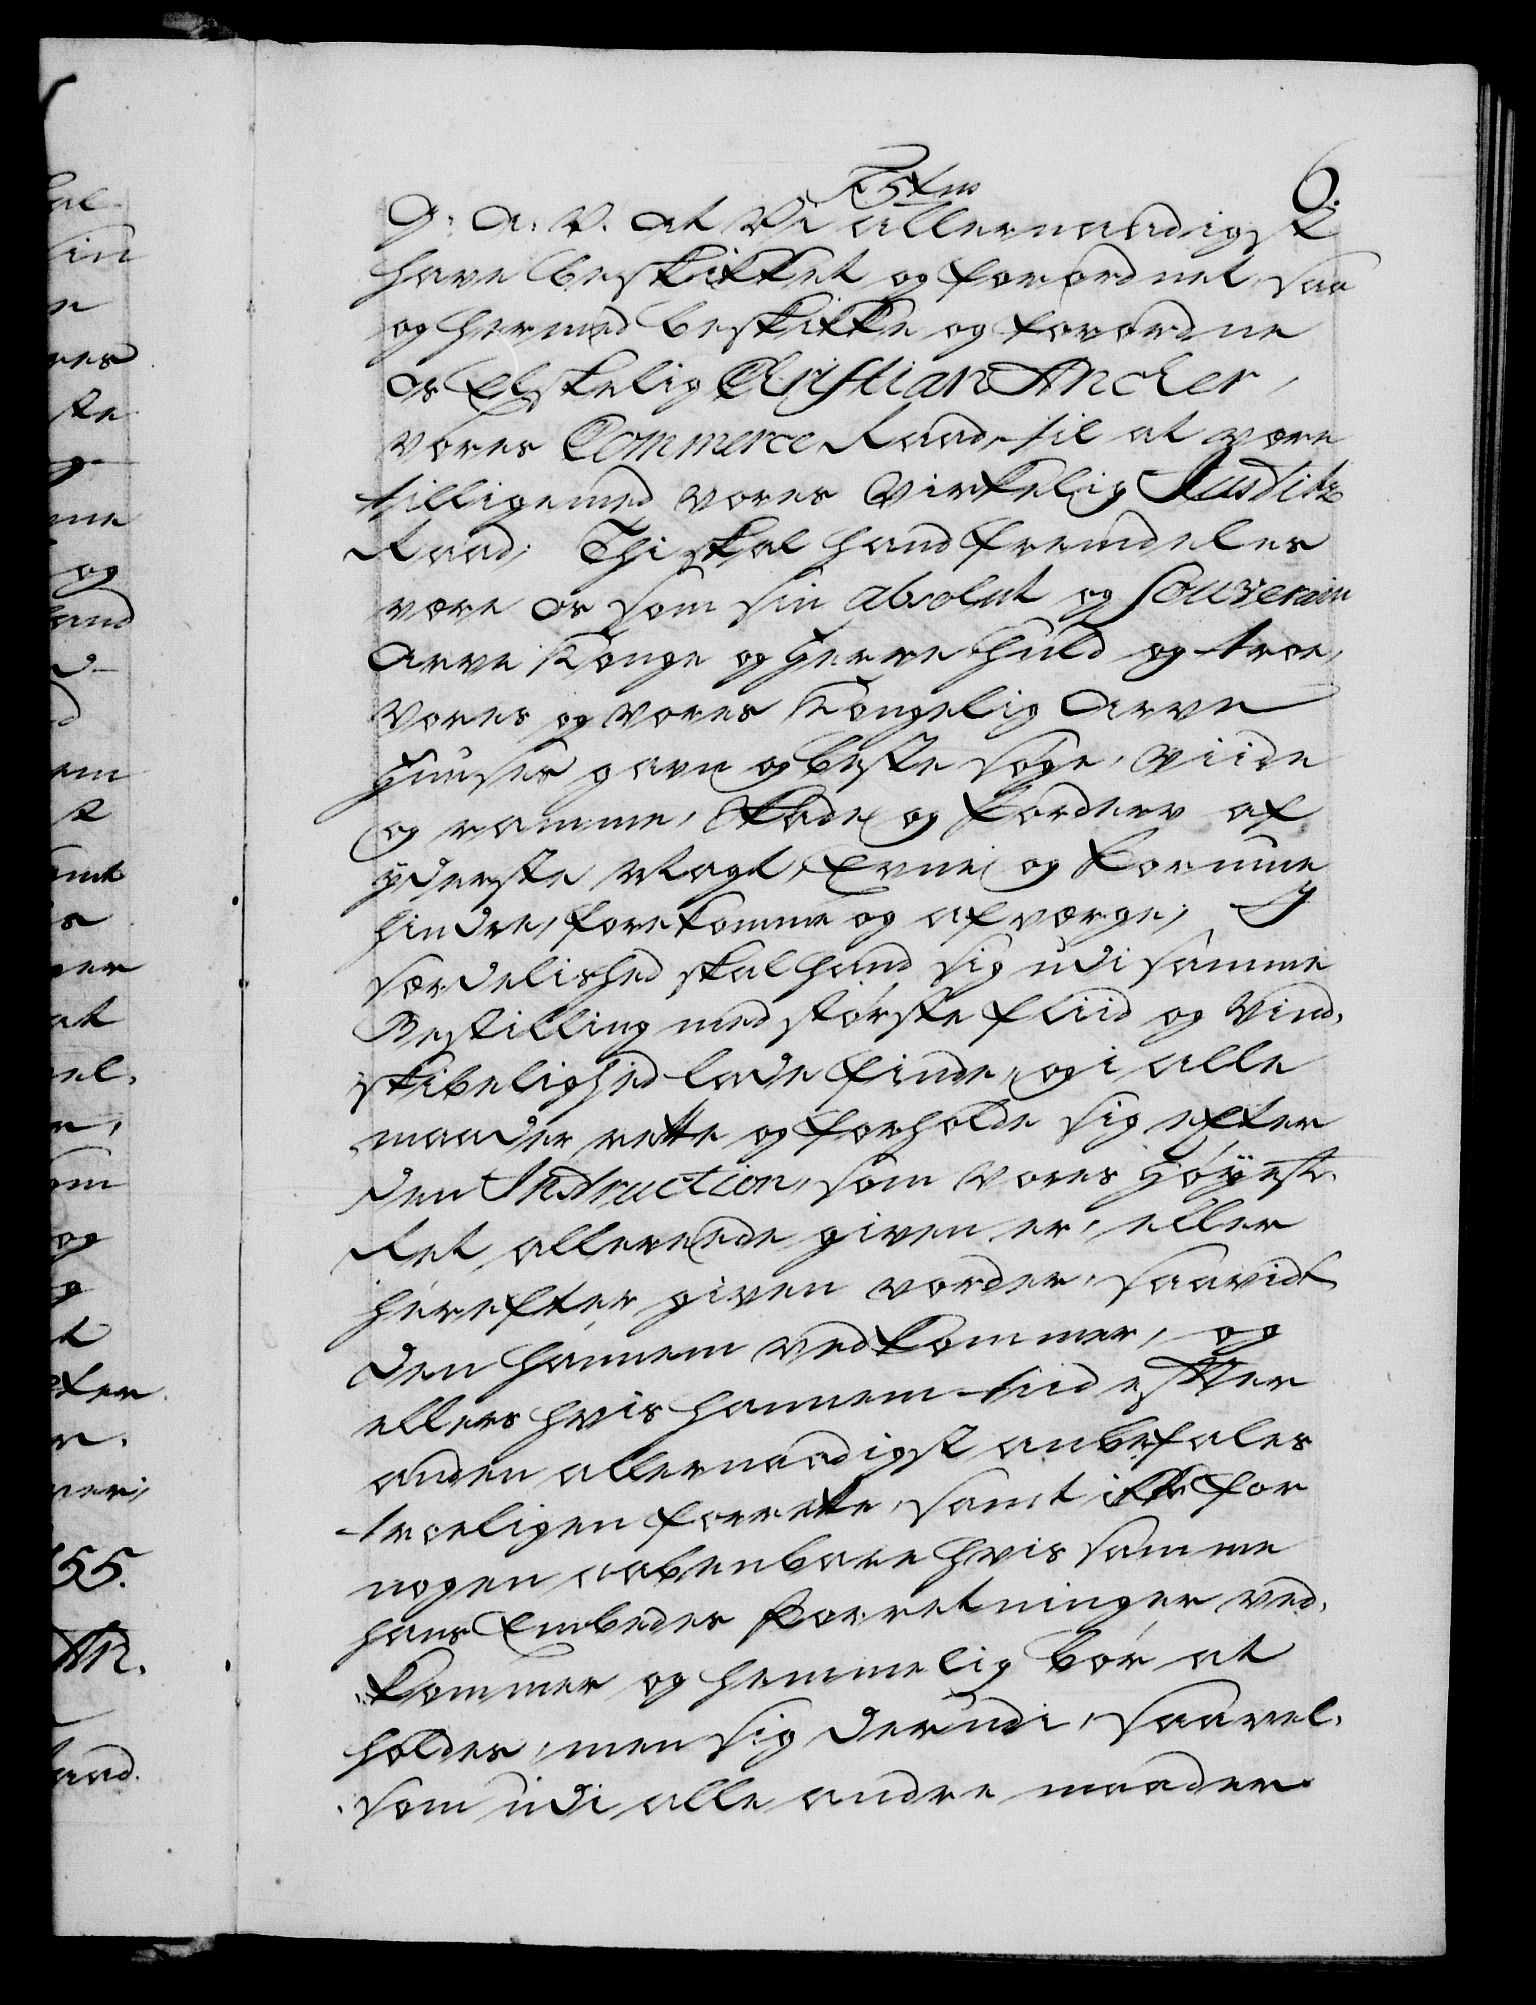 6.
G: A: V. at Vi allernaadigst
have beskikket og forordnet, saa
og hermed beskikke og forordne
os Elskelig Christian Ancher,
vores Commerce Raad, til at være
tilligemed vores Virkelig Justitz
Raad; Thi skal hand fremdeles
være os som sin absolut og Souverain
Arve Konge og Herre huld og troe,
vores og vores Kongelig Arve
Huuses gavn og beste søge, viide
og ramme, Skade og Forderv af
yderste Magt, Evne og Formue
hindre, forekomme og afværge; I
særdelished skal hand sig udi samme
Bestilling med største fliid og Vind,
skibelighed lade finde, og i alle
maader rette og forholde sig efter
den Instruction, som vores Høyeste,
Ret allereede given er, eller
herefter given vorder, saavidt
den hannem vedkommer, og
ellers hvis hannem tiid efter
anden allernaadigst anbefales
troeligen forrette, samt ikke for
nogen aabenbare hvis samme
hans Embedes Forretninger ved,
kommer og hemmelig bør at
holdes, men sig derudi, saavel,
som udi alle andre maader
al
sin
e
res
ste
g
me
og
hand
d
em
st
amt
is
per
at
vel,
n,
om
og
g
t
fter
n.
ner,
155.
R.
aad.